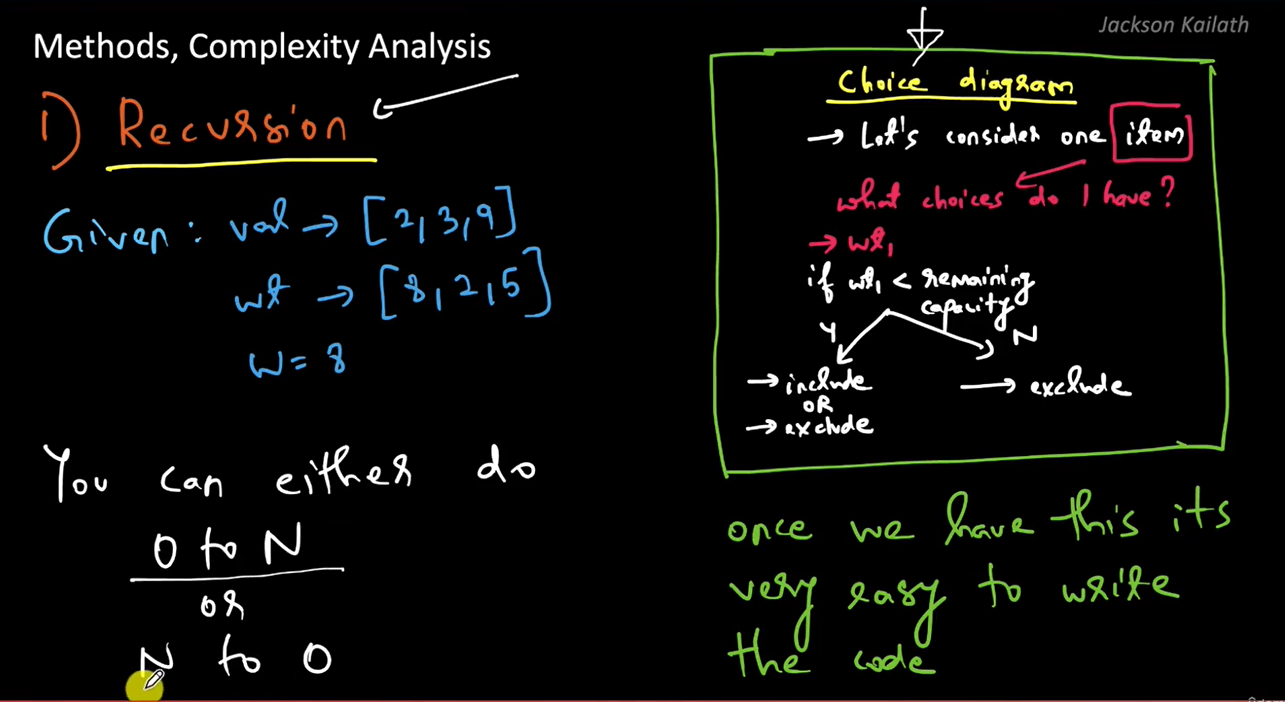 Methods, Complexity Analysis
Jackson Kailath
1) Recursion
Given: val → [2, 3, 9]
wt → [8, 2, 5]
W = 8
You can either do
0 to N
or
N to 0
Choice diagram
→ Let's consider one item
what choices do I have?
→ wt₁
if wt₁ < remaining
capacity
Y N
→ include → exclude
OR
→ exclude
once we have this its
very easy to write
the code